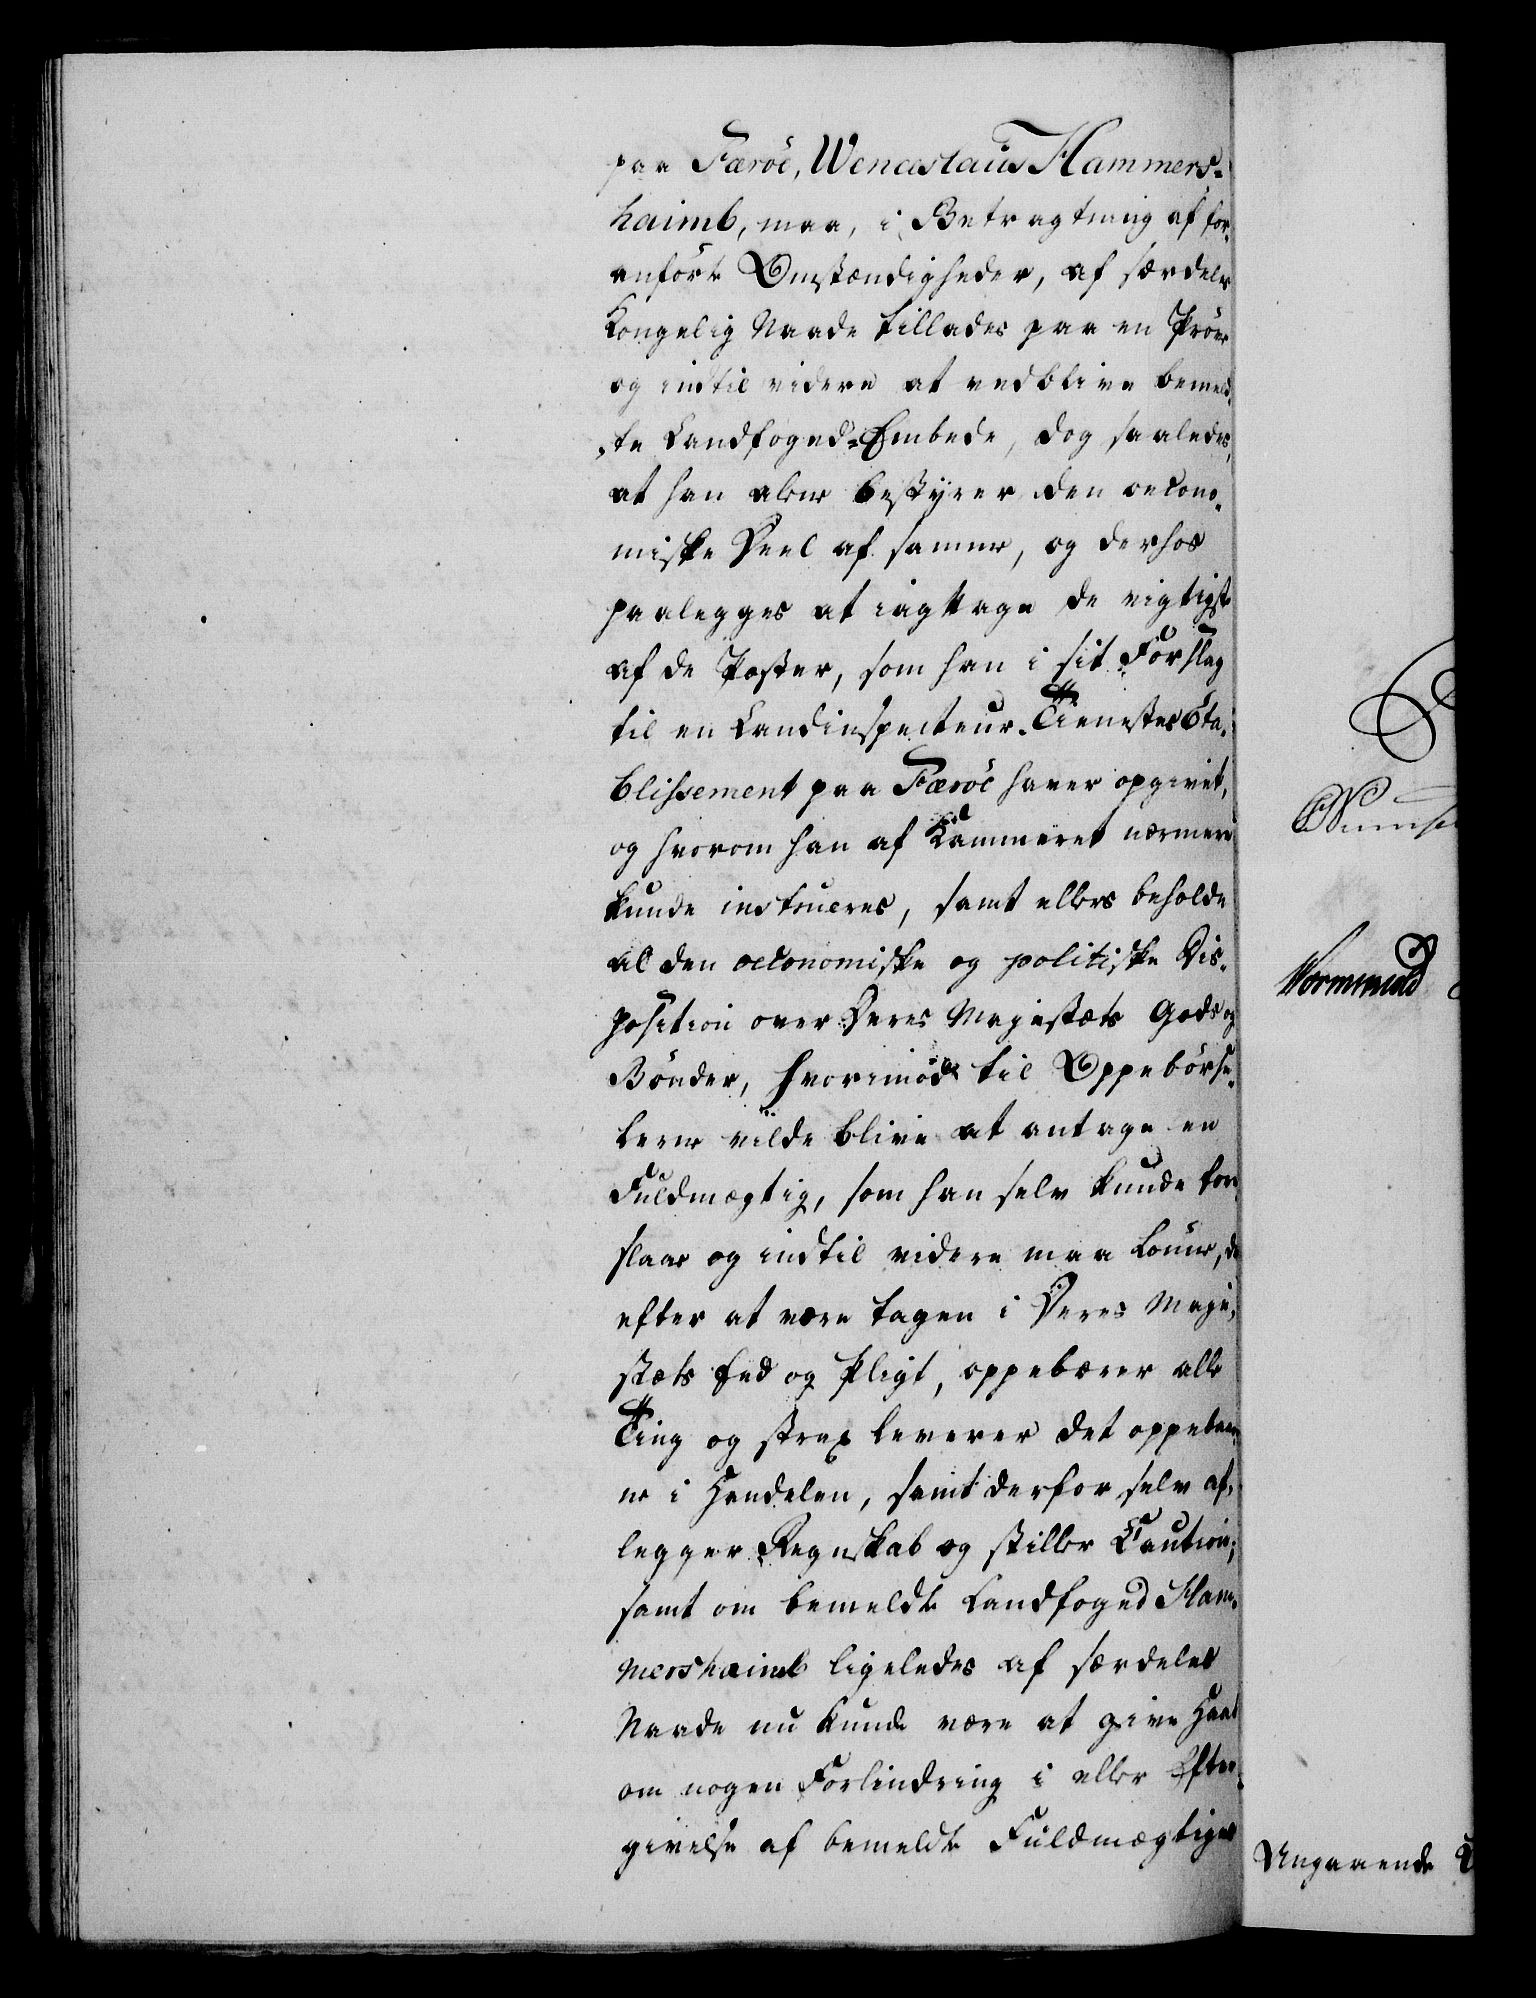 paa Færöe, Wenceslaus Hammers-
haimb, maa, i Betragtning af for-
anförte Omstændigheder, af særdeles
Kongelig Naade tillades paa en Pröve
og indtil videre at vedblive bemeld-
te Landfoged-Embede, dog saaledes,
at han alene bestyrer den oecono-
miske Deel af samme, og derhos
paalegges at iagttage de vigtigste
af de Poster, som han i sit Forslag
til en Landinspecteur-Tienestes Eta-
blissement paa Færöe haver opgivet,
og hvorom han af Kammeret nærmere
kunde instrueres, samt ellers beholde
al den oeconomiske og politiske Dis-
position over Deres Majestæts Gods og
Bönder, hvorimod til Oppebörse-
lerne vilde blive at antage en
Fuldmægtig, som han selv kunde fore
slaae og indtil videre maa lönne, der
efter at være tagen i Deres Maje-
stæts Eed og Pligt, oppebærer alle
Ting og strax leverer det oppebaar-
ne i Handelen, samt derfor selv af-
legger Regnskab og stiller Caution;
samt om bemeldte Landfoged Ham-
mershaimb ligeledes af særdeles
Naade nu kunde være at give Haab
om nogen Forlindring i eller Efter-
givelse af bemeldte Fuldmægtiges
Wormskiold
Angaaende